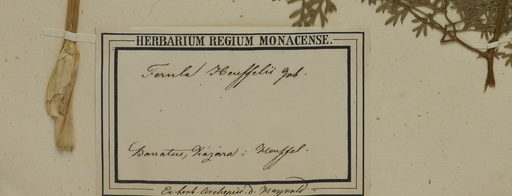 HERBARIUM REGIUM MONACENSE.
Ferula Heuffelii Gsb.
Banatus, Kazara : Heuffel.
Ex herb. Archiepisc. D. Haynald.